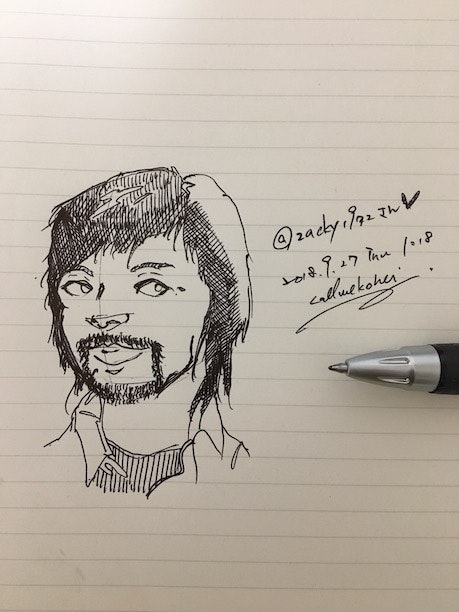 @zacky1972JW ♥
2018.9.27 Thu 1018
callmekohei